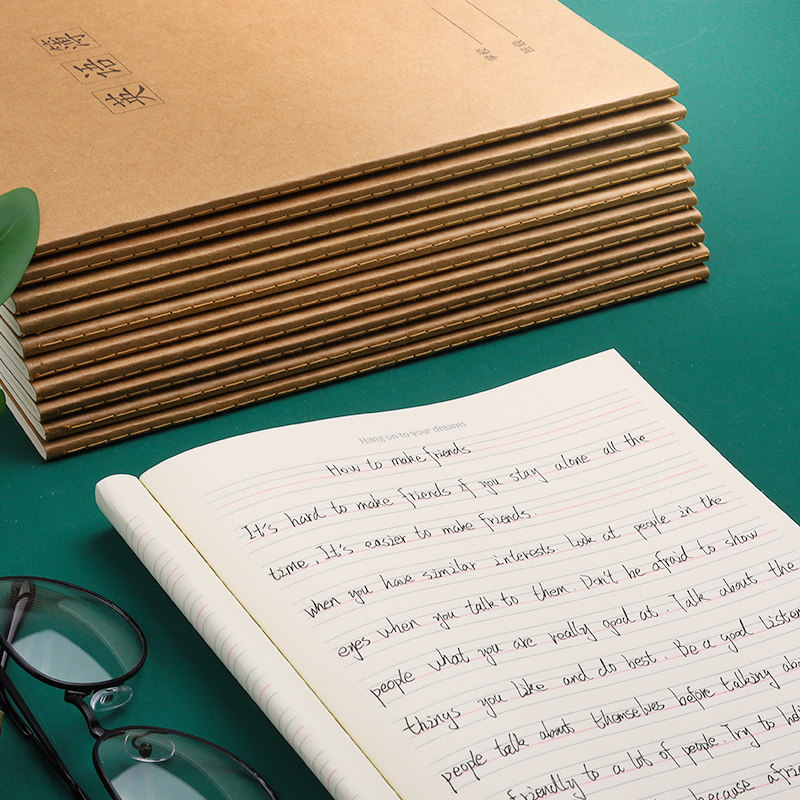 英语簿
班级
姓名
Hang on to your dreams
How to make friends
It's hard to make friends if you stay alone all the
time. It's easier to make friends.
when you have similar interests. Look at people in the
eyes when you talk to them. Don't be afraid to show
people what you are really good at. Talk about the
things you like and do best. Be a good listen
people talk about themselves before talking abo
friendly to a lot of people. Try to
because afrai